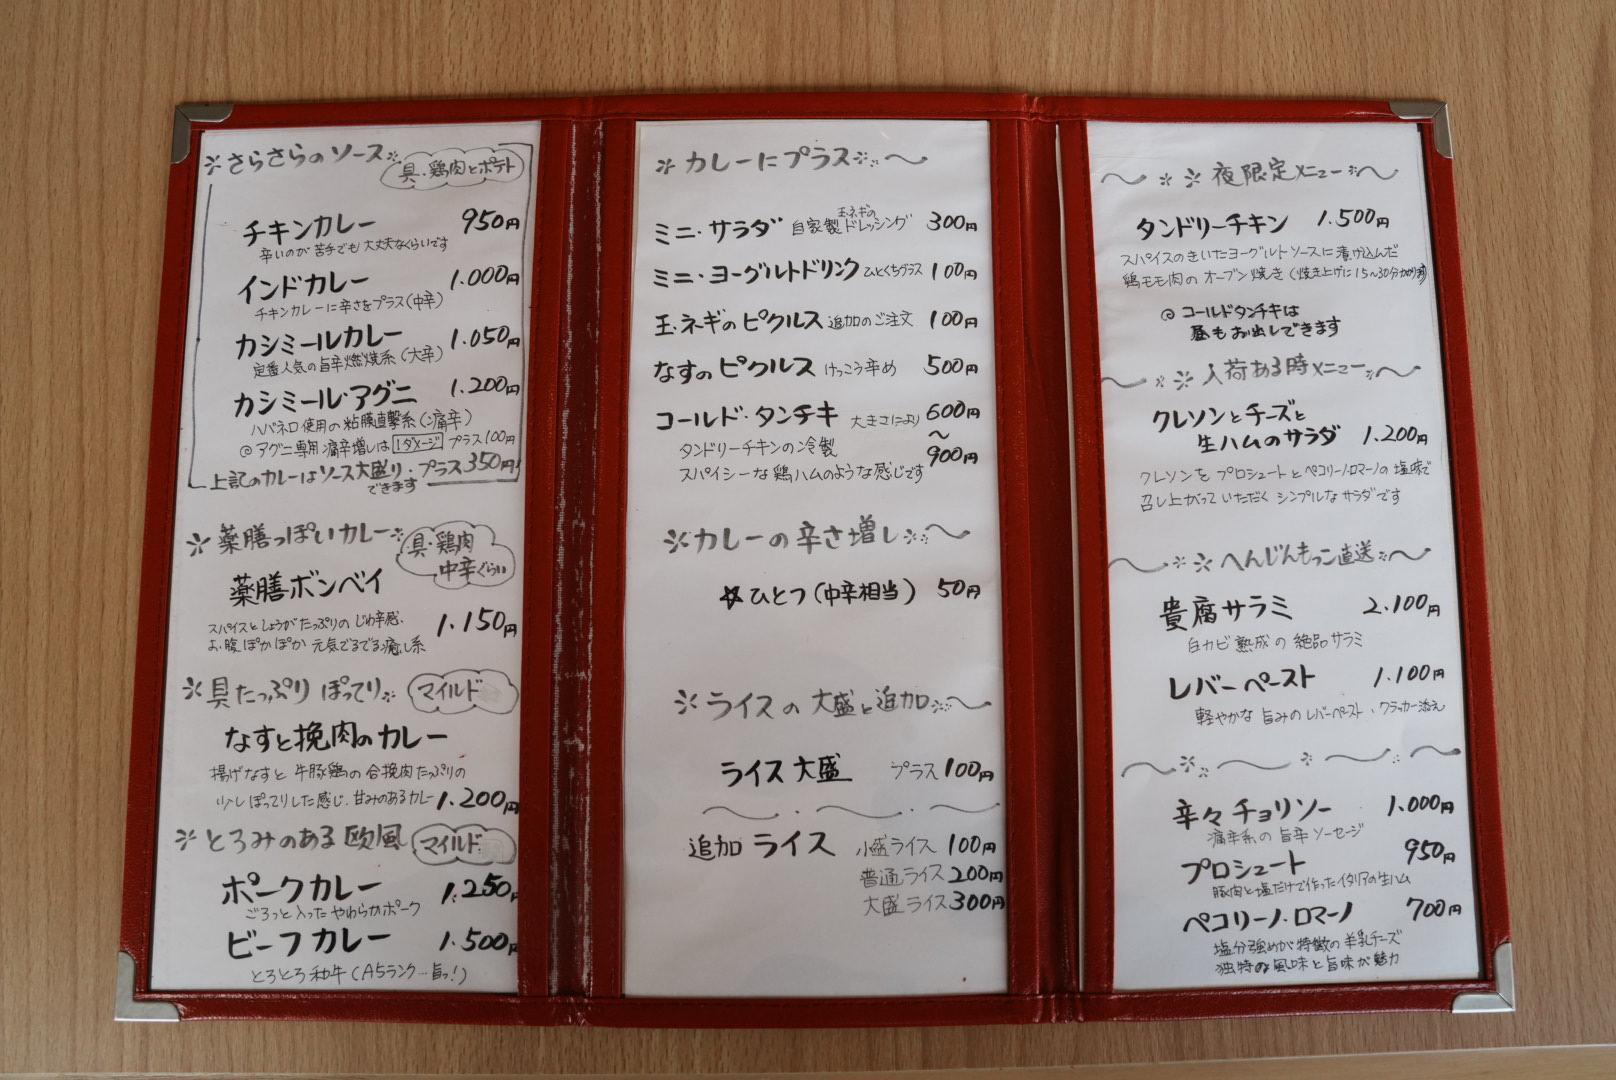 さらさらのソース
具・鶏肉とポテト
チキンカレー 950円
辛いのが苦手でも大丈夫なくらいです
インドカレー 1.000円
チキンカレーに辛さをプラス(中辛)
カシミールカレー 1.050円
定番人気の旨辛燃焼系(大辛)
カシミール・アグニ 1.200円
ハバネロ使用の粘膜直撃系(痛辛)
◎アグニ専用痛辛増しは 1ダメージ プラス100円
上記のカレーはソース大盛り・プラス350円!
できます
薬膳っぽいカレー
具・鶏肉
中辛ぐらい
薬膳ボンベイ
スパイスとしょうがたっぷりのじわ辛感、
お腹ぽかぽか元気でるでる癒し系
1.150円
具たっぷりぽってり
マイルド
なすと挽肉のカレー
揚げなすと牛豚鶏の合挽肉たっぷりの
少しぽってりした感じ、甘みのあるカレー 1.200円
とろみのある欧風
マイルド
ポークカレー 1.250円
ごろっと入ったやわらかポーク
ビーフカレー 1.500円
とろとろ和牛(A5ランク…旨っ!)
カレーにプラス
ミニ・サラダ 自家製玉ネギのドレッシング 300円
ミニ・ヨーグルトドリンク ひとくちグラス 100円
玉ネギのピクルス 追加のご注文 100円
なすのピクルス けっこう辛め 500円
コールド・タンチキ 大きさにより 600円
〜
900円
タンドリーチキンの冷製
スパイシーな鶏ハムのような感じです
カレーの辛さ増し
☆ひとつ(中辛相当) 50円
ライスの大盛と追加
ライス大盛 プラス100円
追加ライス 小盛ライス 100円
普通ライス 200円
大盛ライス 300円
夜限定メニュー
タンドリーチキン 1.500円
スパイスのきいたヨーグルトソースに漬け込んだ
鶏モモ肉のオーブン焼き(焼き上げに15〜30分かかります)
◎コールドタンチキは
昼もお出しできます
入荷ある時メニュー
クレソンとチーズと
生ハムのサラダ 1.200円
クレソンをプロシュートとペコリーノ・ロマーノの塩味で
召し上がっていただくシンプルなサラダです
へんじんもっこ直送
貴腐サラミ 2.100円
白カビ熟成の絶品サラミ
レバーペースト 1.100円
軽やかな旨みのレバーペースト、クラッカー添え
辛々チョリソー 1.000円
痛辛系の旨辛ソーセージ
プロシュート 950円
豚肉と塩だけで作ったイタリアの生ハム
ペコリーノ・ロマーノ 700円
塩分強めが特徴の羊乳チーズ
独特な風味と旨味が魅力